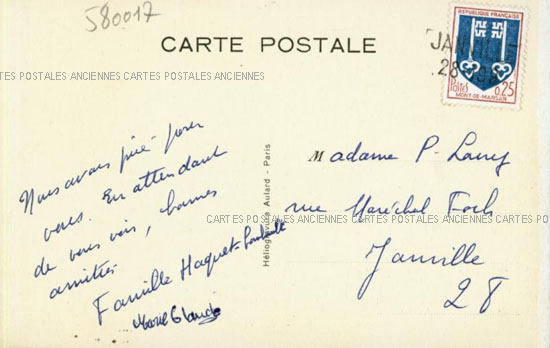 580017
CARTE POSTALE
REPUBLIQUE FRANÇAISE
POSTES 0,25
MONT-DE-MARSAN
JANVILLE
28
CARTES POSTALES ANCIENNES CARTES POSTALES ANCIENNES
Nous avons prié pour
vous. En attendant
de vous voir, bonnes
amitiés
Famille Haquet
Marie Claude
Héliogravure Aulard - Paris
Madame P. Lamy
rue Maréchal Foch
CARTES POSTALES ANCIENNES CARTES POSTALES ANCIENNES CARTES POSTALES
Janville
28